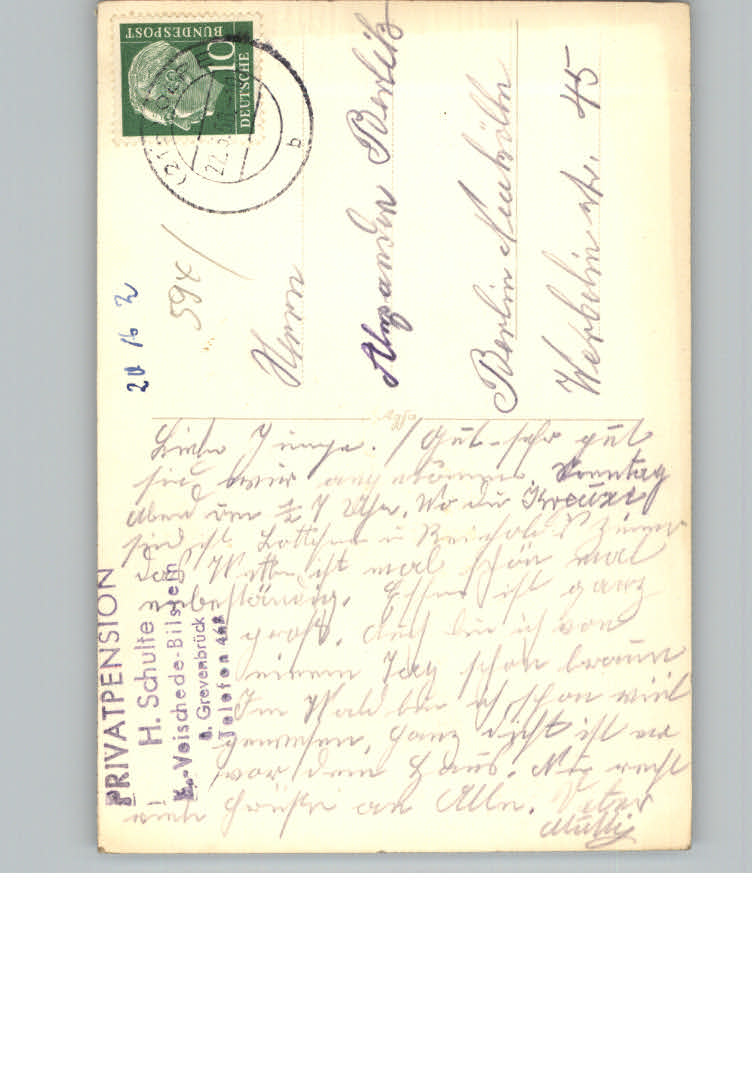 DEUTSCHE
BUNDESPOST
10
(21
22.5.
b
20 16 2
594/
Herrn
Alexander Berlitz
Berlin Neukölln
Werbelin str. 45
Agfa
PRIVATPENSION
H. Schulte
Veischede-Bilstein
ü. Grevenbrück
Telefon
Liebe Jungs! Gut - sehr gut
sind wir angekommen. Sonntag
abend um 7 Uhr. Wo die Kreuze
sind ist Lottchen u Reinhold Zimmer
das Wetter ist mal schön mal
unbeständig. Essen ist ganz
groß. Auch bin ich von
einem Tag schon braun
Im Wald bin ich schon viel
gewesen, ganz dicht ist er
vor dem Haus. Nun recht
viele Grüße an Alle. Vater
Mutti